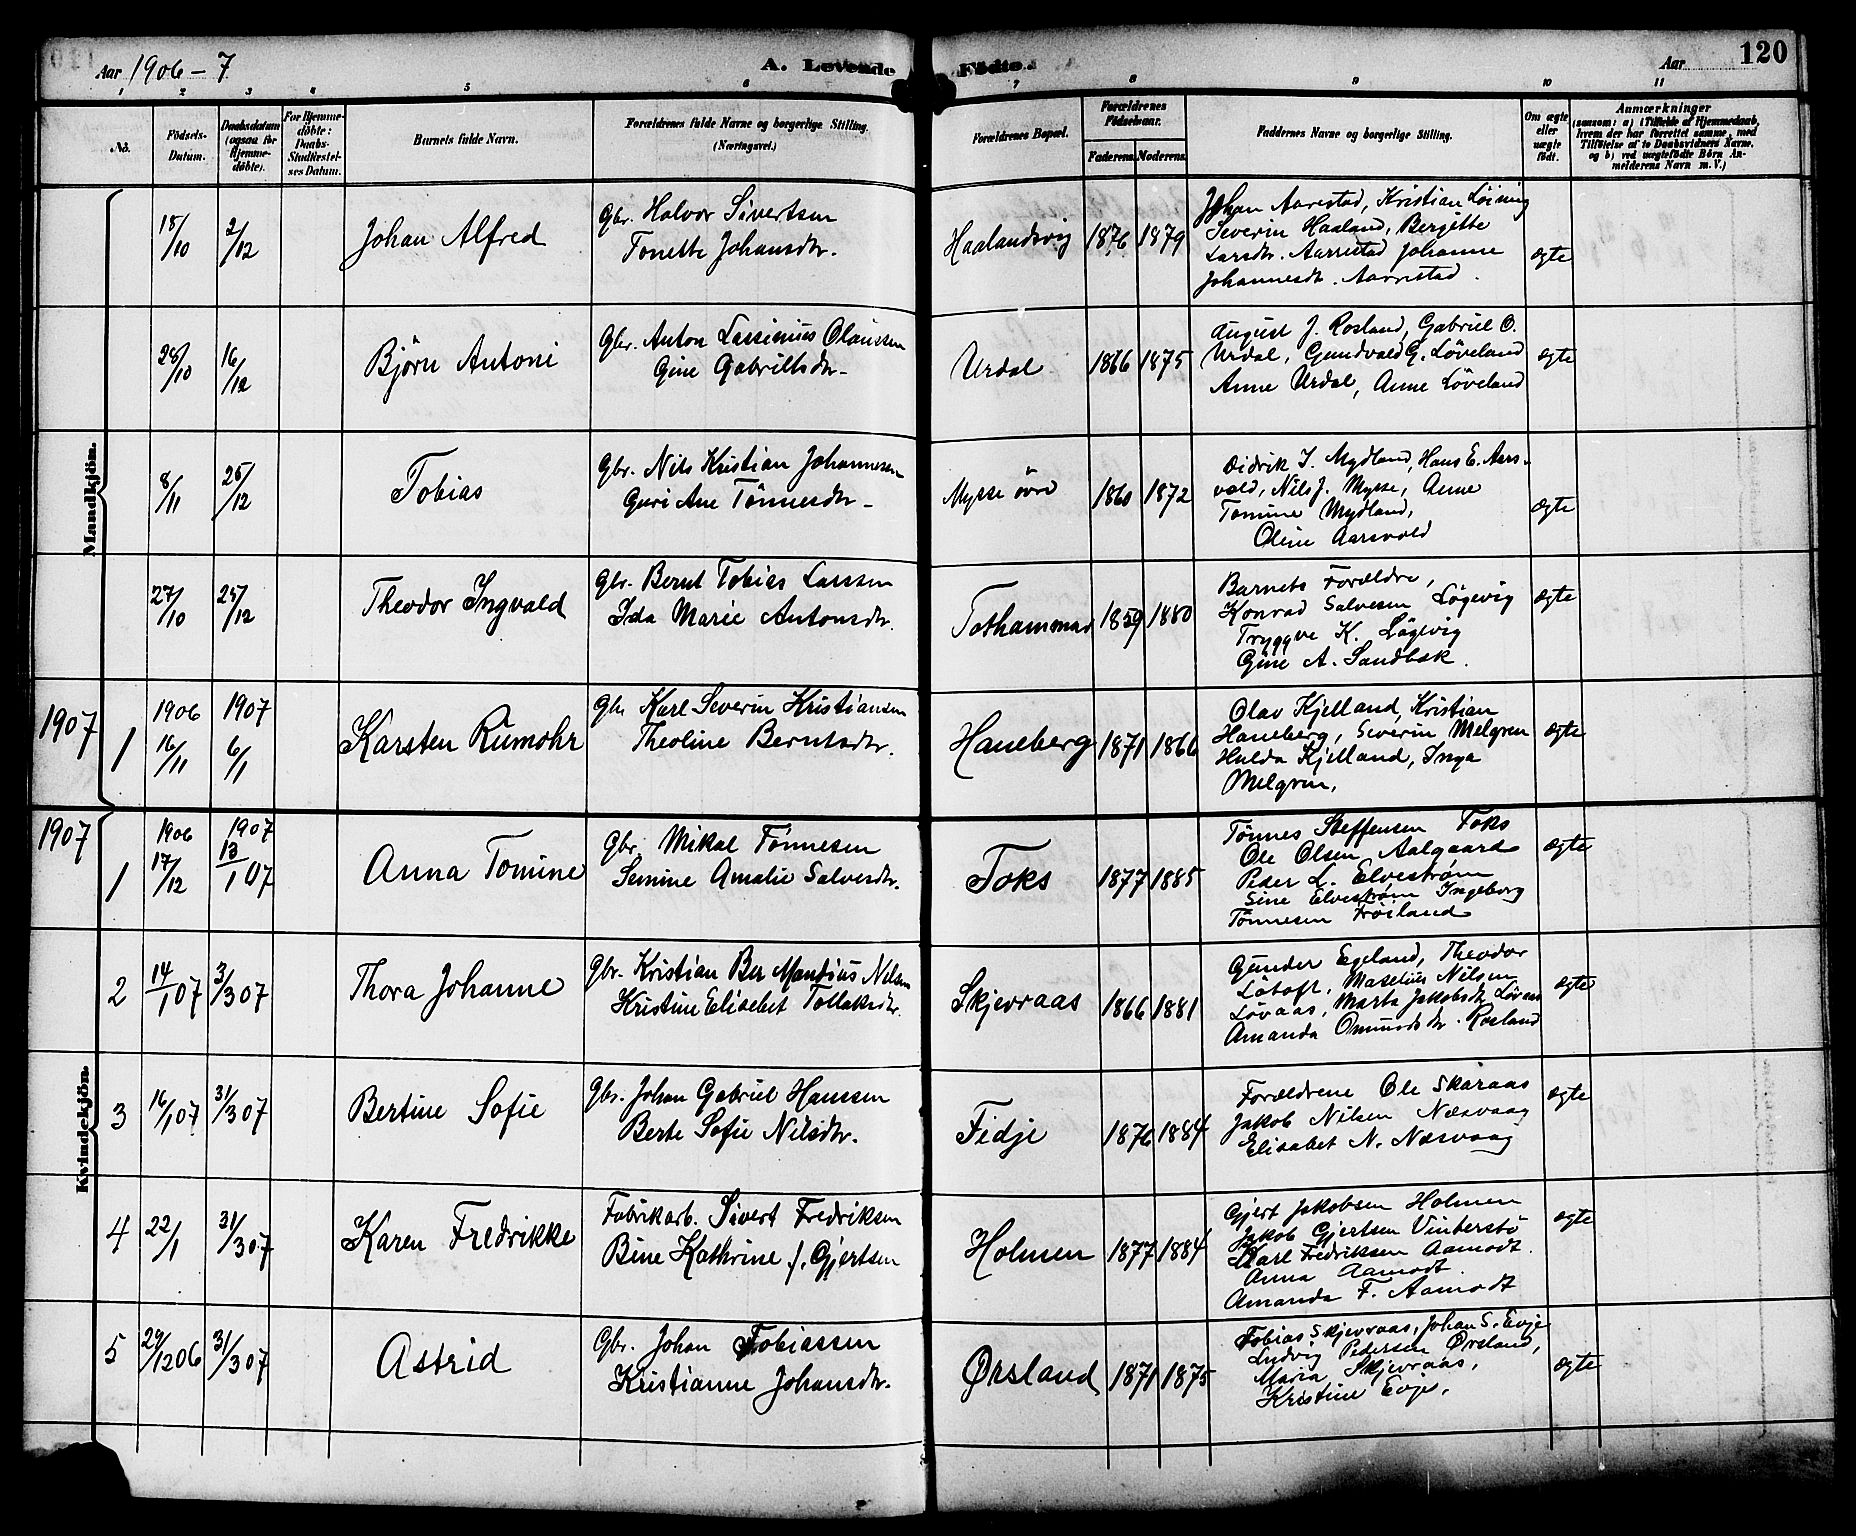 Aar 1906-7
A. Levende Födte.
Aar
120
1 2 3 4 5 6 7 8 9 10 11
No.
Födsels-Datum.
Daabsdatum (ogsaa for Hjemme-döbte).
For Hjemme-döbte: Daabs-Stadfæstel-ses Datum.
Barnets fulde Navn.
Forældrenes fulde Navne og borgerlige Stilling. (Næringsvei.)
Forældrenes Bopæl.
Forældrenes Födselsaar.
Faderens. Moderens.
Faddernes Navne og borgerlige Stilling.
Om ægte eller uægte födt.
Anmærkninger
(saasom: a) i Tilfælde af Hjemmedaab, hvem der har forrettet samme, med Tilföielse af to Daabsvidners Navne, og b) ved uægtefödte Börn An-melderens Navn m. V.)
Mandkjön.
18/10 2/12 Johan Alfred
Gbr. Halvor Sivertsen
Tonette Johansdtr.
Haalandsvig 1876 1879
Johan Aarestad, Kristian Löining
Severin Haaland, Bergitte
Larsdtr. Aarrestad Johanne
Johannesdt. Aarrestad.
ægte
28/10 16/12 Björn Antoni
Gbr. Anton Lassenius Olaussen
Gine Gabrielsdtr.
Urdal 1866 1875
August J. Rosland, Gabriel O.
Urdal, Gundvald G. Löveland
Anne Urdal, Anne Löveland
ægte
8/11 25/12 Tobias
Gbr. Nils Kristian Johannesen
Guri Ane Tönnesdtr.
Mysse övre 1860 1872
Didrik T. Mydland, Hans E. Aars-
vold, Nils J. Mysse, Anne
Tomine Mydland,
Oline Aarsvold
ægte
27/10 25/12 Theodor Ingvald
Gbr. Bernt Tobias Larssen
Ida Marie Antonsdtr.
Tothammar 1859 1880
Barnets Forældre,
Konrad Salvesen Lögevig
Tryggve K. Lögevig
Gine A. Sandbæk.
ægte
1907 1 1906 16/11 1907 6/1 Karsten Rumohr
Gbr. Karl Severin Kristiansen
Theoline Berntsdtr.
Haneberg 1871 1866
Olav Kjelland, Kristian
Haneberg, Severin Melgren
Hulda Kjelland, Inga
Melgren,
ægte
Kvindekjön.
1907 1 1906 17/12 1907 13/1 07 Anna Tomine
Gbr. Mikal Tönnesen
Semine Amalie Salvesdtr.
Foks 1877 1885
Tönnes Steffensen Foks
Ole Olsen Aalgaard
Peder L. Elveström
Sine Elveström Ingeborg
Tönnesen Fröiland
ægte
2 14/1 07 3/3 07 Thora Johanne
Gbr. Kristian Ber Mandius Nilsen
Kristine Elisabet Tollaksdtr.
Skjevraas 1866 1881
Gunder Egeland, Theodor
Lötoft, Maselius Nilsen
Lövaas, Marta Jakobsdt. Lövaas
Amanda Omundsdtr. Rosland
ægte
3 16/1 07 31/3 07 Bertine Sofie
Gbr. Johan Gabriel Hanssen
Berte Sofie Nilsdtr.
Fidje 1876 1884
Forældrene Ole Skaraas
Jakob Nilsen Næsvaag
Elisabet N. Næsvaag
ægte
4 22/1 31/3 07 Karen Fredrikke
Fabrikarb. Sivert Fredriksen
Bine Kathrine f. Gjertsen
Holmen 1877 1884
Gjert Jakobsen Holmen
Jakob Gjertsen Vinterstö
Karl Fredriksen Aamodt.
Anna Aamodt.
Amanda F. Aamodt
ægte
5 29/12 06 31/3 07 Astrid
Gbr. Johan Tobiassen
Kristianne Johansdtr.
Ørsland 1871 1875
Tobias Skjevraas, Johan S. Evje
Ludvig Pedersen Ørsland,
Maria Skjevraas,
Kristine Evje.
ægte